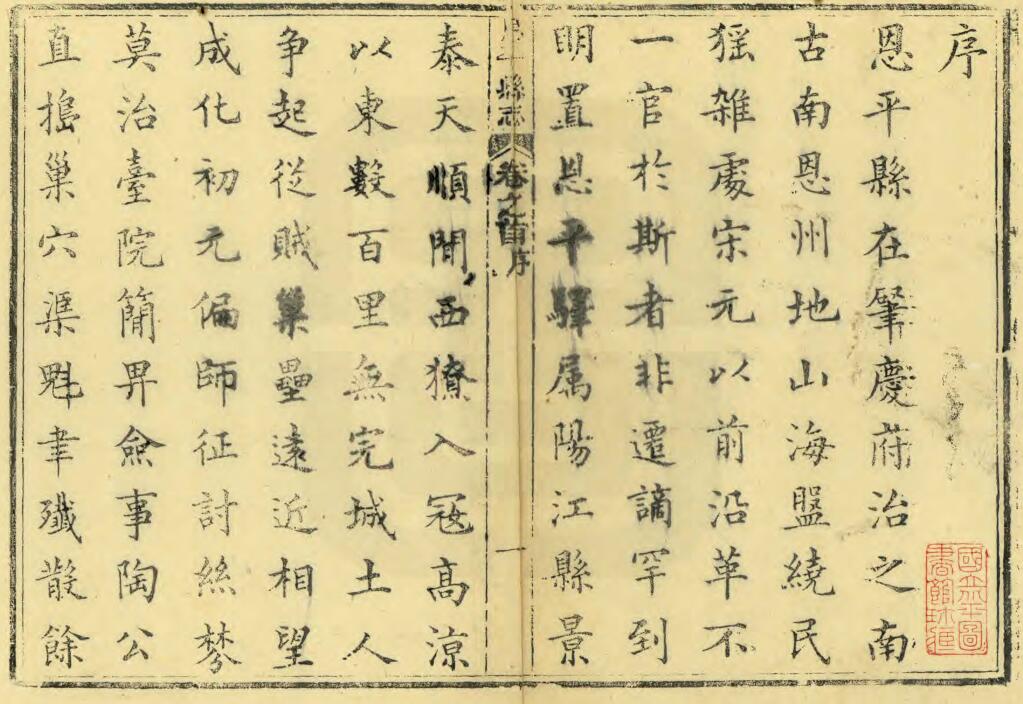 序
恩平縣在肇慶府治之南
古南恩州地山海盤繞民
猺雜處宋元以前沿革不
一官於斯者非遷謫罕到
明置恩平驛属陽江縣景
縣志
卷之首序
一
泰天順間西獠入寇高凉
以東數百里無完城土人
争起從賊巢壘遠近相望
成化初元偏師征討絲棼
莫治臺院簡畀僉事陶公
直搗巢穴渠魁聿殲散餘
國立北平圖
書館收藏